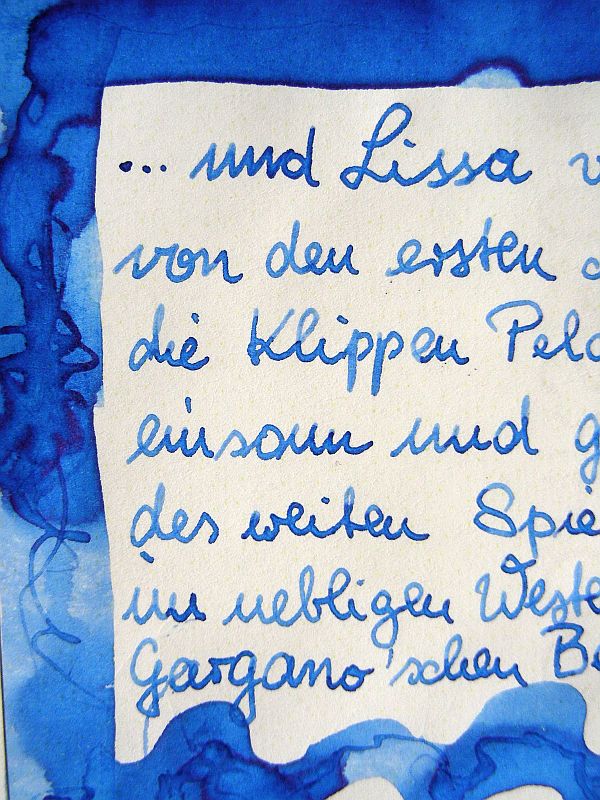 ... und Lissa v
von den ersten
die Klippen Pela
einsam und g
des weiten Spie
im nebligen Weste
Gargano'schen Be